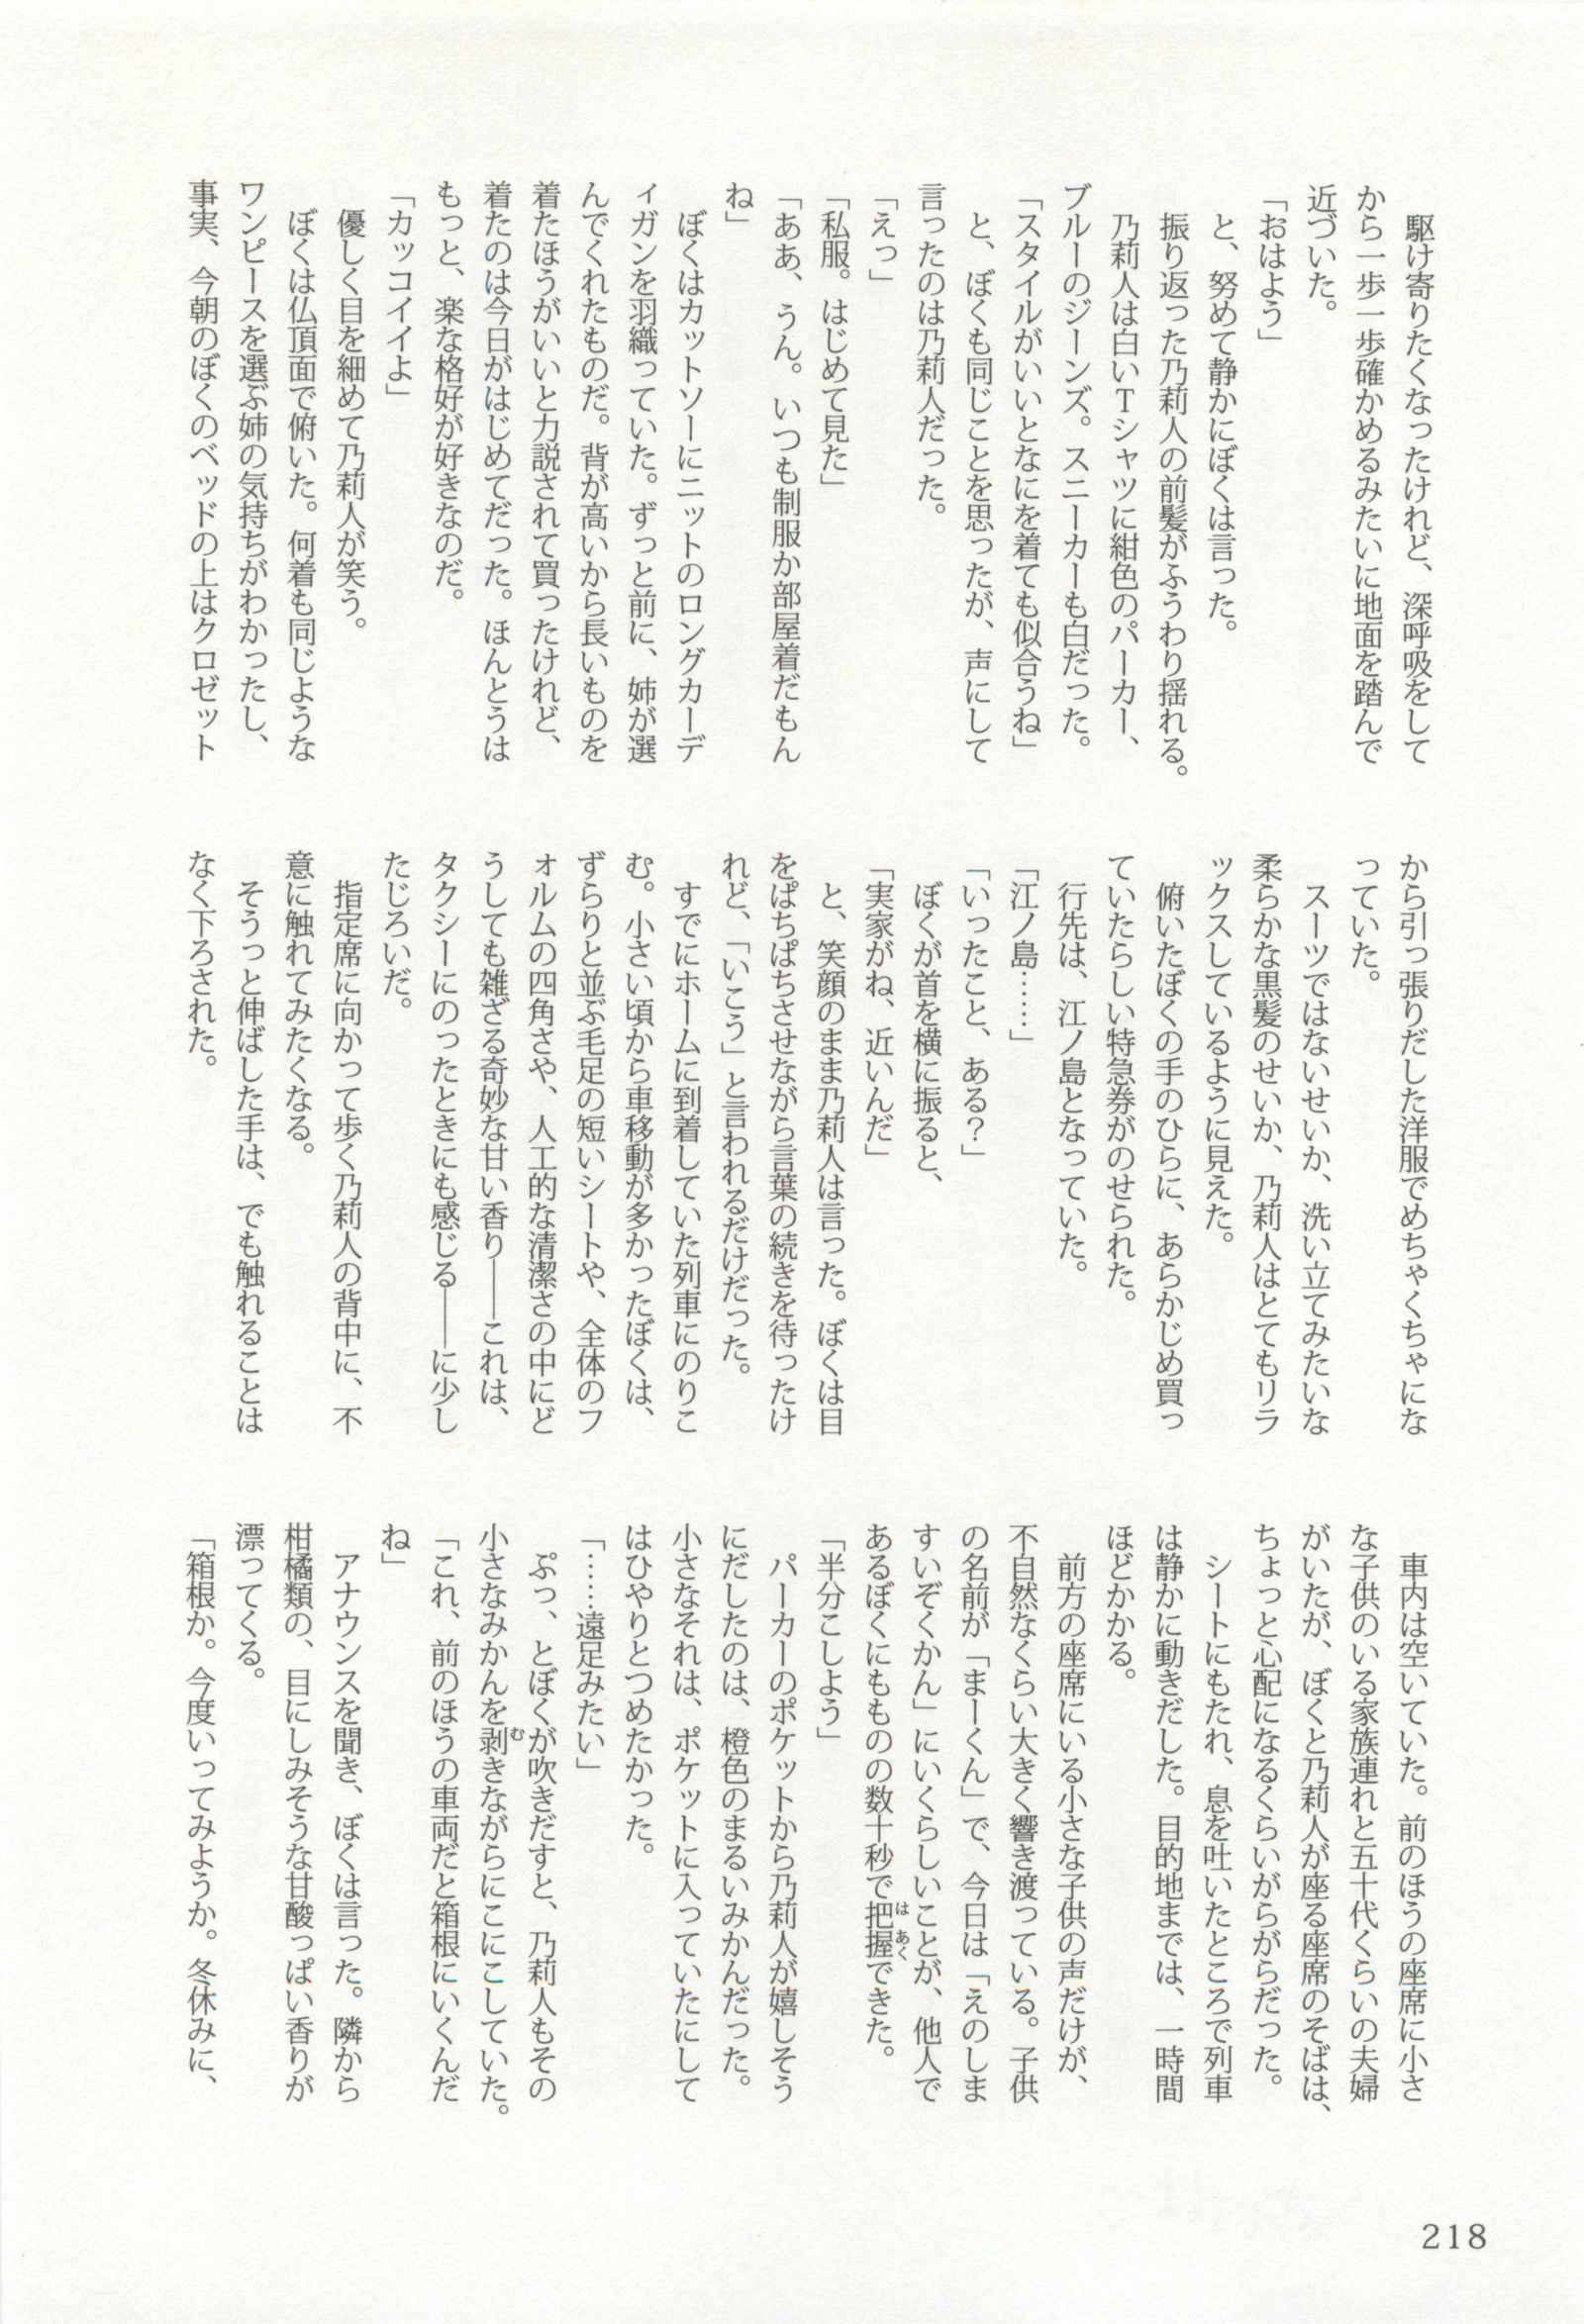 駆け寄りたくなったけれど、深呼吸をして
から一歩一歩確かめるみたいに地面を踏んで
近づいた。
「おはよう」
　と、努めて静かにぼくは言った。
　振り返った乃莉人の前髪がふうわり揺れる。
　乃莉人は白いTシャツに紺色のパーカー、
ブルーのジーンズ。スニーカーも白だった。
「スタイルがいいとなにを着ても似合うね」
　と、ぼくも同じことを思ったが、声にして
言ったのは乃莉人だった。
「えっ」
「私服。はじめて見た」
「ああ、うん。いつも制服か部屋着だもん
ね」
　ぼくはカットソーにニットのロングカーデ
ィガンを羽織っていた。ずっと前に、姉が選
んでくれたものだ。背が高いから長いものを
着たほうがいいと力説されて買ったけれど、
着たのは今日がはじめてだった。ほんとうは
もっと、楽な格好が好きなのだ。
「カッコイイよ」
　優しく目を細めて乃莉人が笑う。
　ぼくは仏頂面で俯いた。何着も同じような
ワンピースを選ぶ姉の気持ちがわかったし、
事実、今朝のぼくのベッドの上はクロゼット
から引っ張りだした洋服でめちゃくちゃにな
っていた。
　スーツではないせいか、洗い立てみたいな
柔らかな黒髪のせいか、乃莉人はとてもリラ
ックスしているように見えた。
　俯いたぼくの手のひらに、あらかじめ買っ
ていたらしい特急券がのせられた。
　行先は、江ノ島となっていた。
「江ノ島……」
「いったこと、ある？」
　ぼくが首を横に振ると、
「実家がね、近いんだ」
　と、笑顔のまま乃莉人は言った。ぼくは目
をぱちぱちさせながら言葉の続きを待ったけ
れど、「いこう」と言われるだけだった。
　すでにホームに到着していた列車にのりこ
む。小さい頃から車移動が多かったぼくは、
ずらりと並ぶ毛足の短いシートや、全体のフ
ォルムの四角さや、人工的な清潔さの中にど
うしても雑ざる奇妙な甘い香り――これは、
タクシーにのったときにも感じる――に少し
たじろいだ。
　指定席に向かって歩く乃莉人の背中に、不
意に触れてみたくなる。
　そうっと伸ばした手は、でも触れることは
なく下ろされた。
　車内は空いていた。前のほうの座席に小さ
な子供のいる家族連れと五十代くらいの夫婦
がいたが、ぼくと乃莉人が座る座席のそばは、
ちょっと心配になるくらいがらがらだった。
　シートにもたれ、息を吐いたところで列車
は静かに動きだした。目的地までは、一時間
ほどかかる。
　前方の座席にいる小さな子供の声だけが、
不自然なくらい大きく響き渡っている。子供
の名前が「まーくん」で、今日は「えのしま
すいぞくかん」にいくらしいことが、他人で
あるぼくにもものの数十秒で把握(はあく)できた。
「半分こしよう」
　パーカーのポケットから乃莉人が嬉しそう
にだしたのは、橙色のまるいみかんだった。
小さなそれは、ポケットに入っていたにして
はひやりとつめたかった。
「……遠足みたい」
　ぷっ、とぼくが吹きだすと、乃莉人もその
小さなみかんを剥(む)きながらにこにこしていた。
「これ、前のほうの車両だと箱根にいくんだ
ね」
　アナウンスを聞き、ぼくは言った。隣から
柑橘類の、目にしみそうな甘酸っぱい香りが
漂ってくる。
「箱根か。今度いってみようか。冬休みに、
218